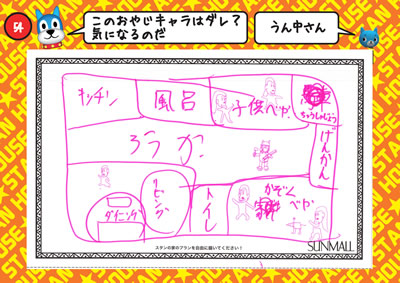 54
このおやじキャラはダレ？
気になるのだ
うん中さん
キッチン
風呂
子供べや
ちゅうしゃじょう
ろうか
げんかん
リビング
ダイニング
トイレ
かぞくべや
スタンの家のプランを自由に描いてください！
SUNMALL
HOUSE
STAN